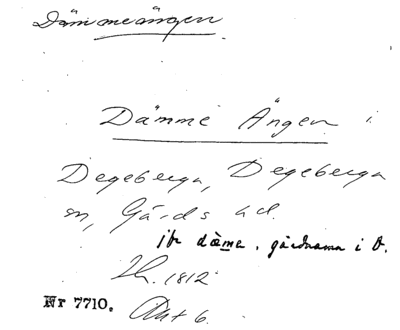 Dämmeängen
Dämme Ängen i
Degeberga, Degeberga
sn, Gärds hd.
jfr däme, gårdnamn i D.
1812
Nr 7710. Akt 6.